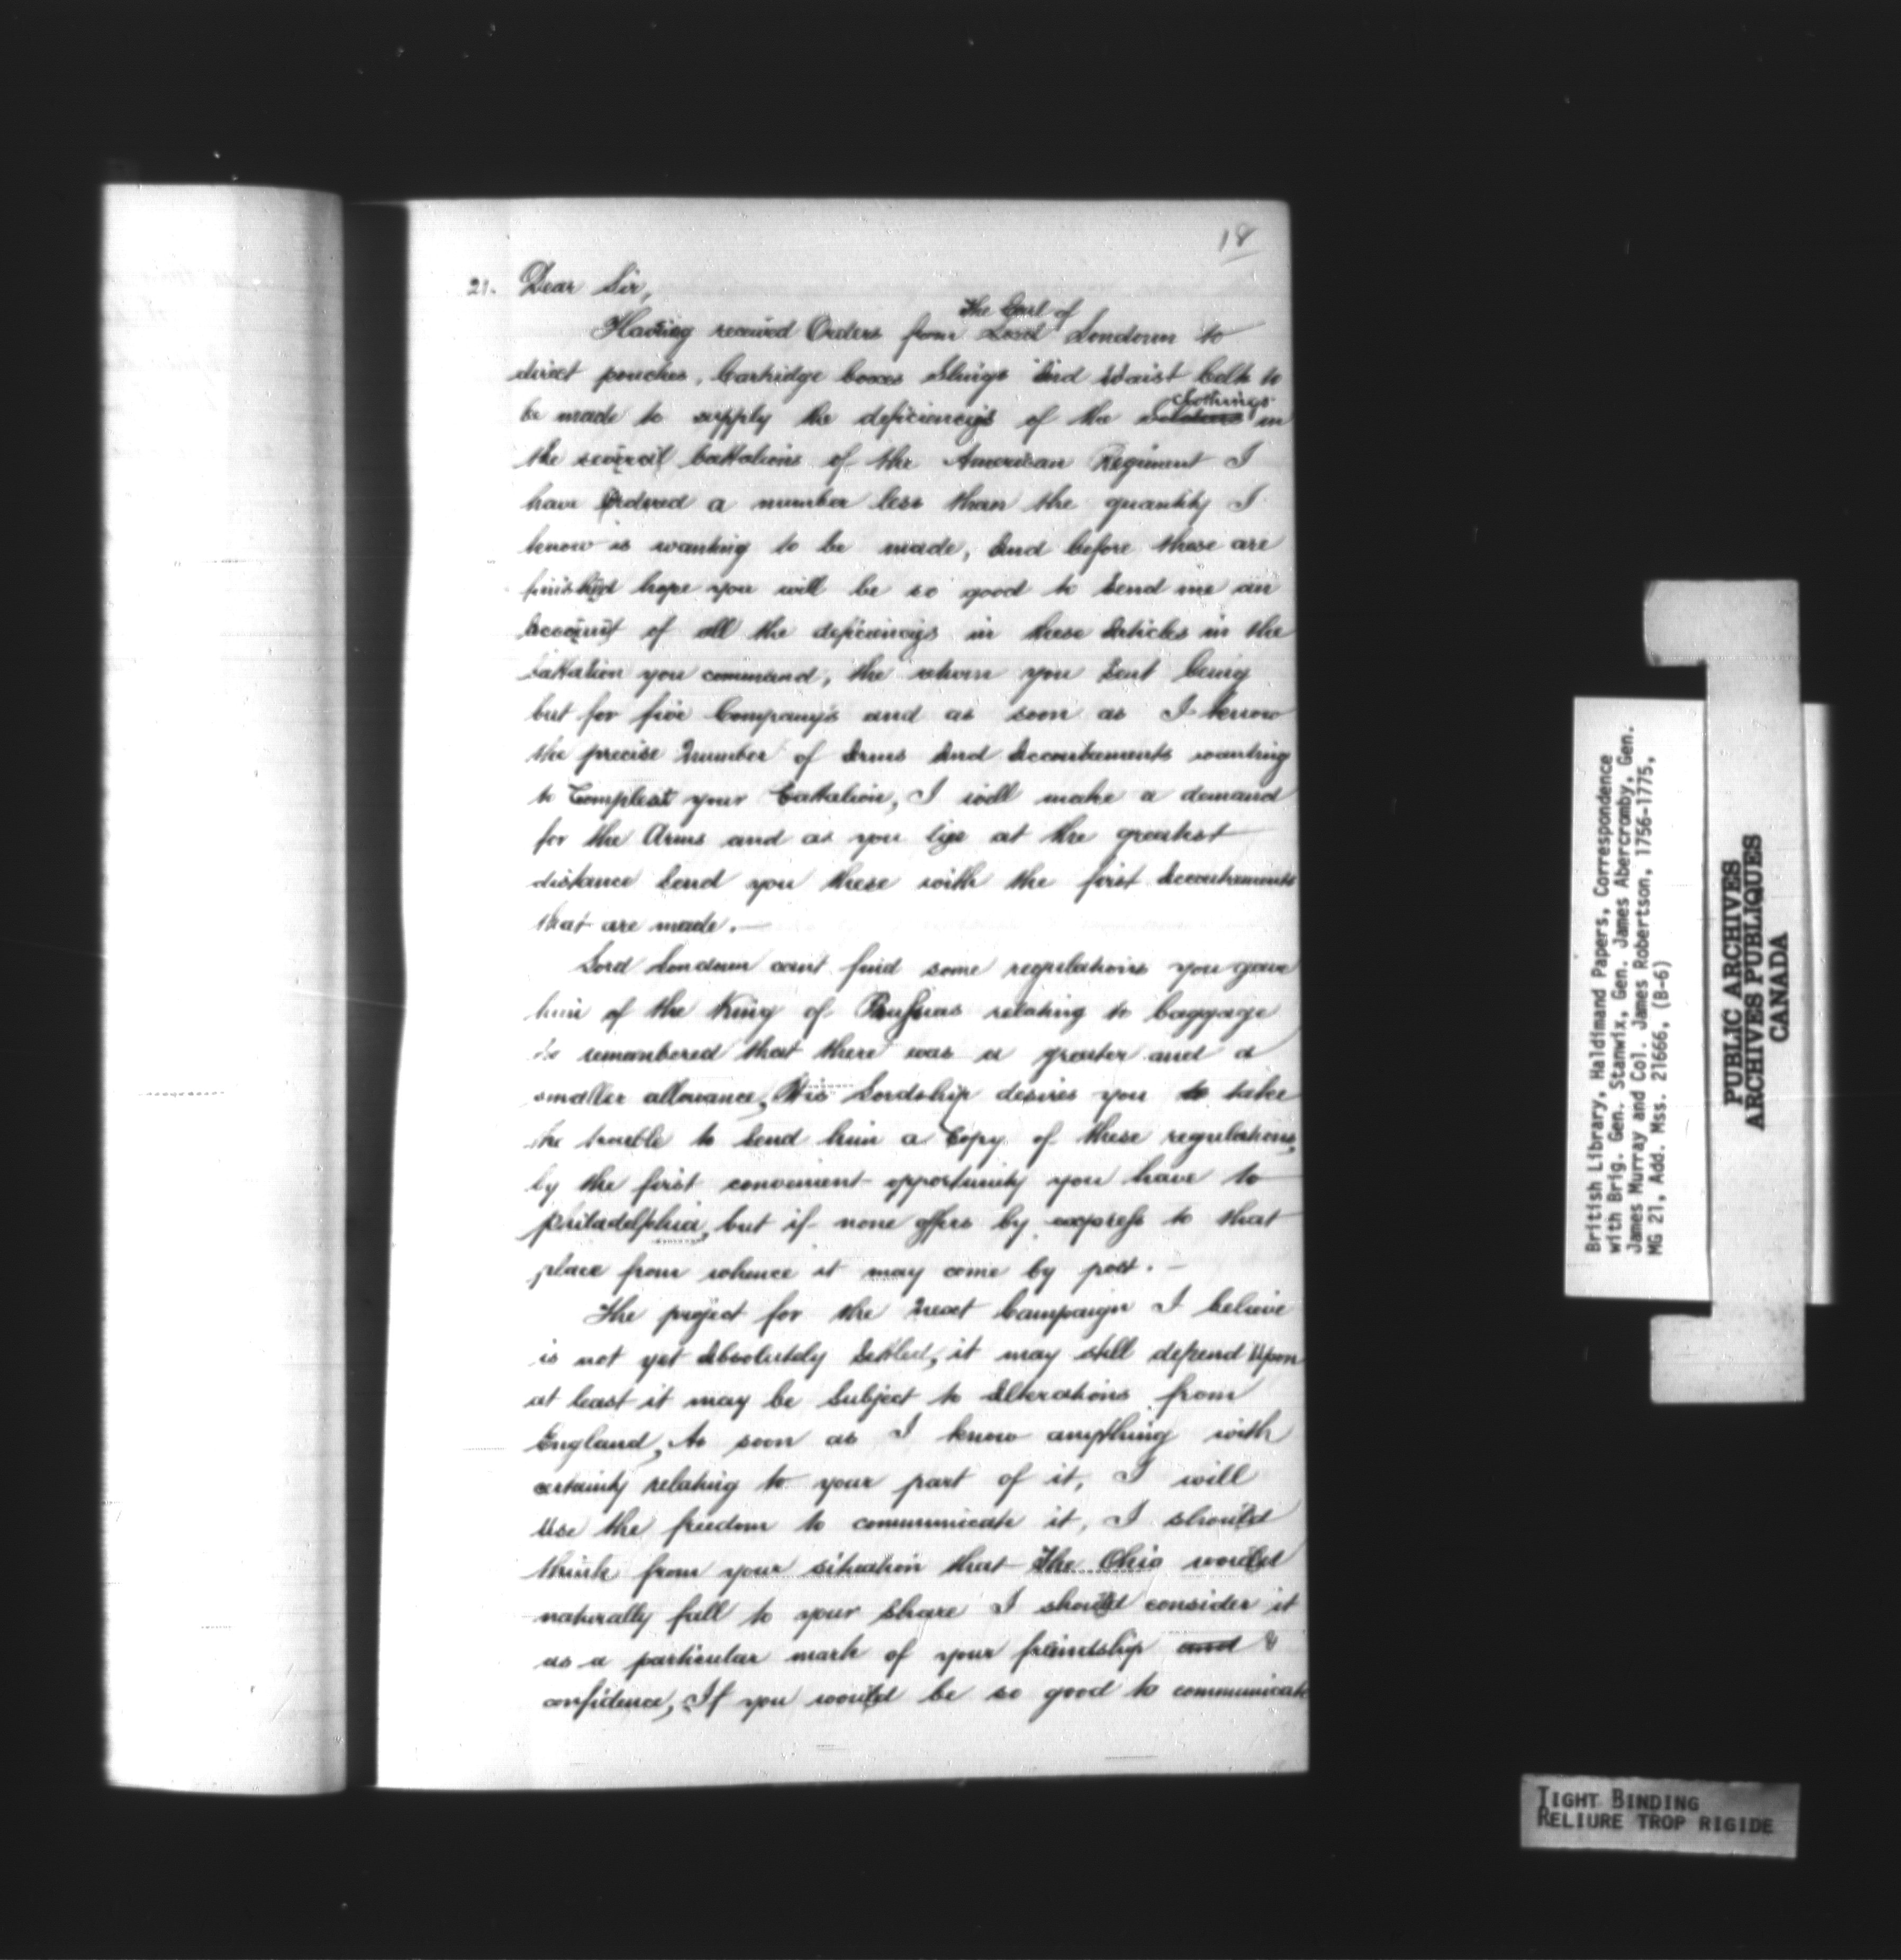 18
21. Dear Sir,
the Earl of
Having received Orders from Lord Loudoun to
direct pouches, Cartridge boxes Slings And Waist belts to
clothings
be made to supply the deficiencys of the in
the several battalions of the American Regiment I
have Ordered a number less than the quantity I
know is wanting to be made, And before these are
finished hope you will be so good to Send me an
Account of all the deficiencys in these Articles in the
battalion you command, the return you Sent being
but for five Company's and as soon as I know
the precise Number of Arms And Accoutaments wanting
to Compleat your Battalion, I will make a demand
for the Arms and as you lye at the greatest
distance Send you these with the first Accoutraments
that are made. —
Lord Loudoun cant find some regulations you gave
him of the King of Prussias relating to baggage
he remembered that there was a greater and a
smaller allowance, His Lordship desires you to take
the trouble to Send him a Copy of these regulations,
by the first convenient opportunity you have to
Philadelphia, but if none offers by express to that
place from whence it may come by post. —
The project for the Next Campaign I believe
is not yet Absolutely Settled, it may still depend Upon
at least it may be Subject to Alterations from
England, As soon as I know anything with
certainty relating to your part of it, I will
Use the freedom to communicate it, I should
think from your situation that The Ohio would
naturally fall to your Share I should consider it
as a particular mark of your friendship and &
confidence, If you would be so good to communicate
British Library, Haldimand Papers, Correspondence
with Brig. Gen. Stanwix, Gen. James Abercromby, Gen.
James Murray and Col. James Robertson, 1756-1775,
MG 21, Add. Mss. 21666, (B-6)
PUBLIC ARCHIVES
ARCHIVES PUBLIQUES
CANADA
TIGHT BINDING
RELIURE TROP RIGIDE